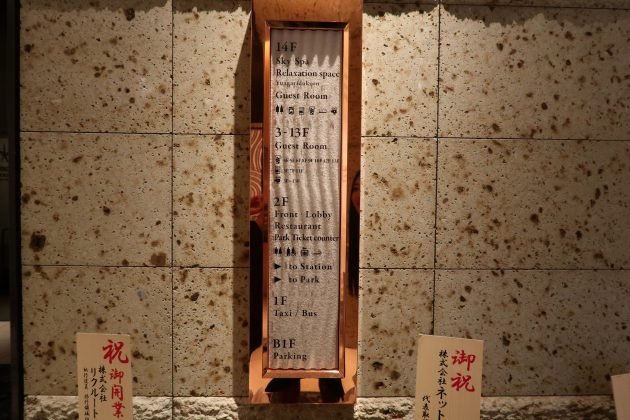 14F
Sky Spa
Relaxation space
Yuagaridokoro
Guest Room
3-13F
Guest Room
2F
Front · Lobby
Restaurant
Park Ticket counter
▶ to Station
▶ to Park
1F
Taxi / Bus
B1F
Parking
祝 御開業
株式会社
リクルート
御祝
株式会社 ネット
代表取